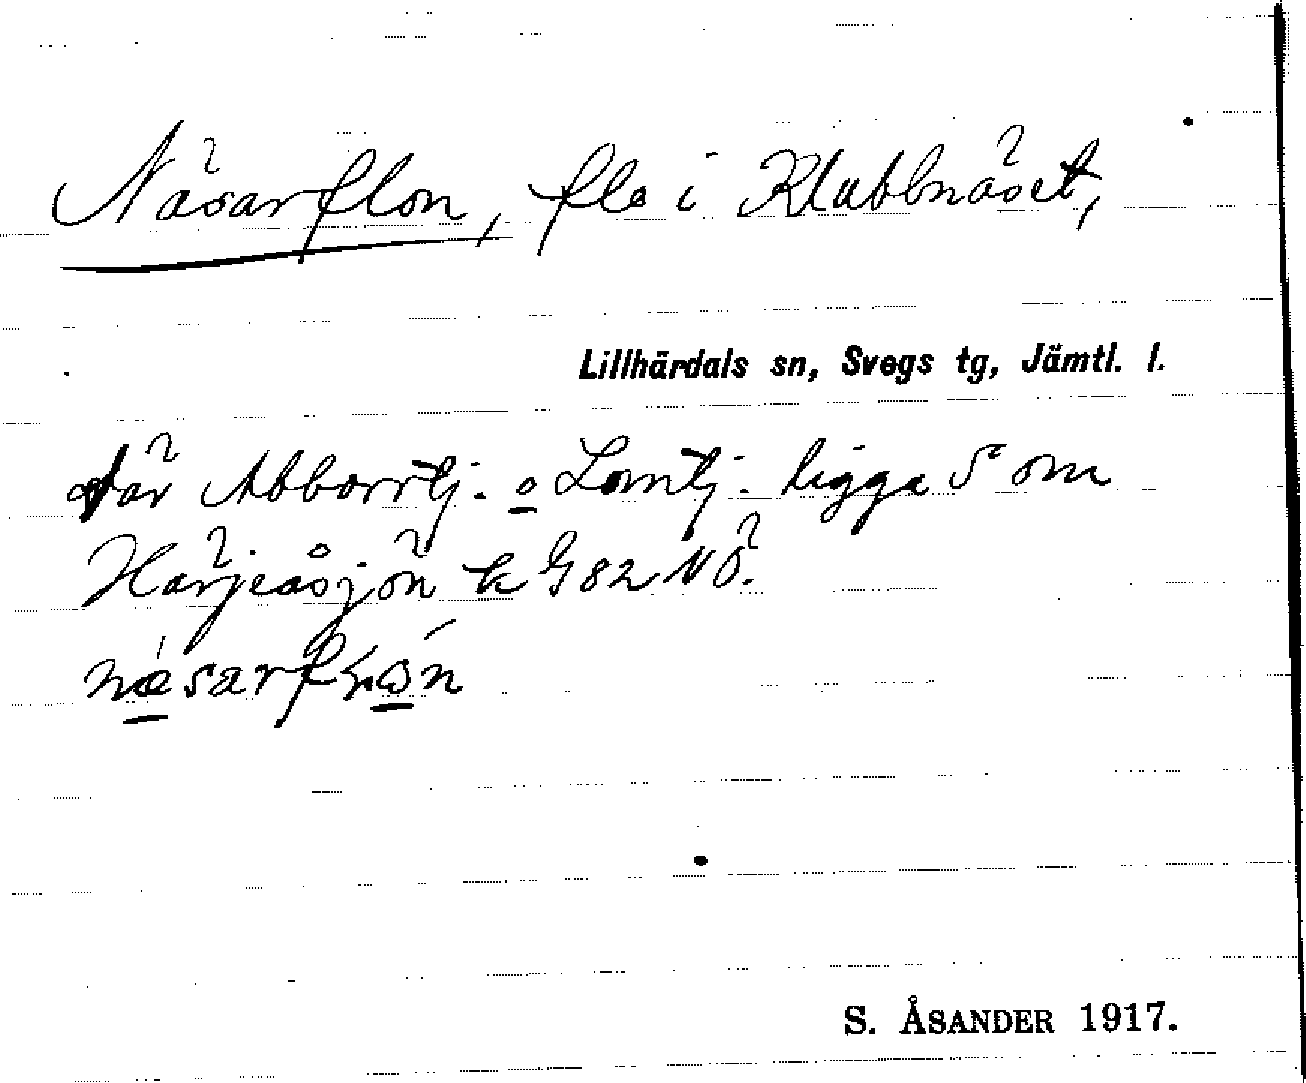 Näsarflon, flo i Klubbnäset,
Lillhärdals sn, Svegs tg, Jämtl. l.
där Abborrtj. o Lomtj. ligga S om
Härjeåsjön k G82 NÖ.
S. ÅSANDER 1917.